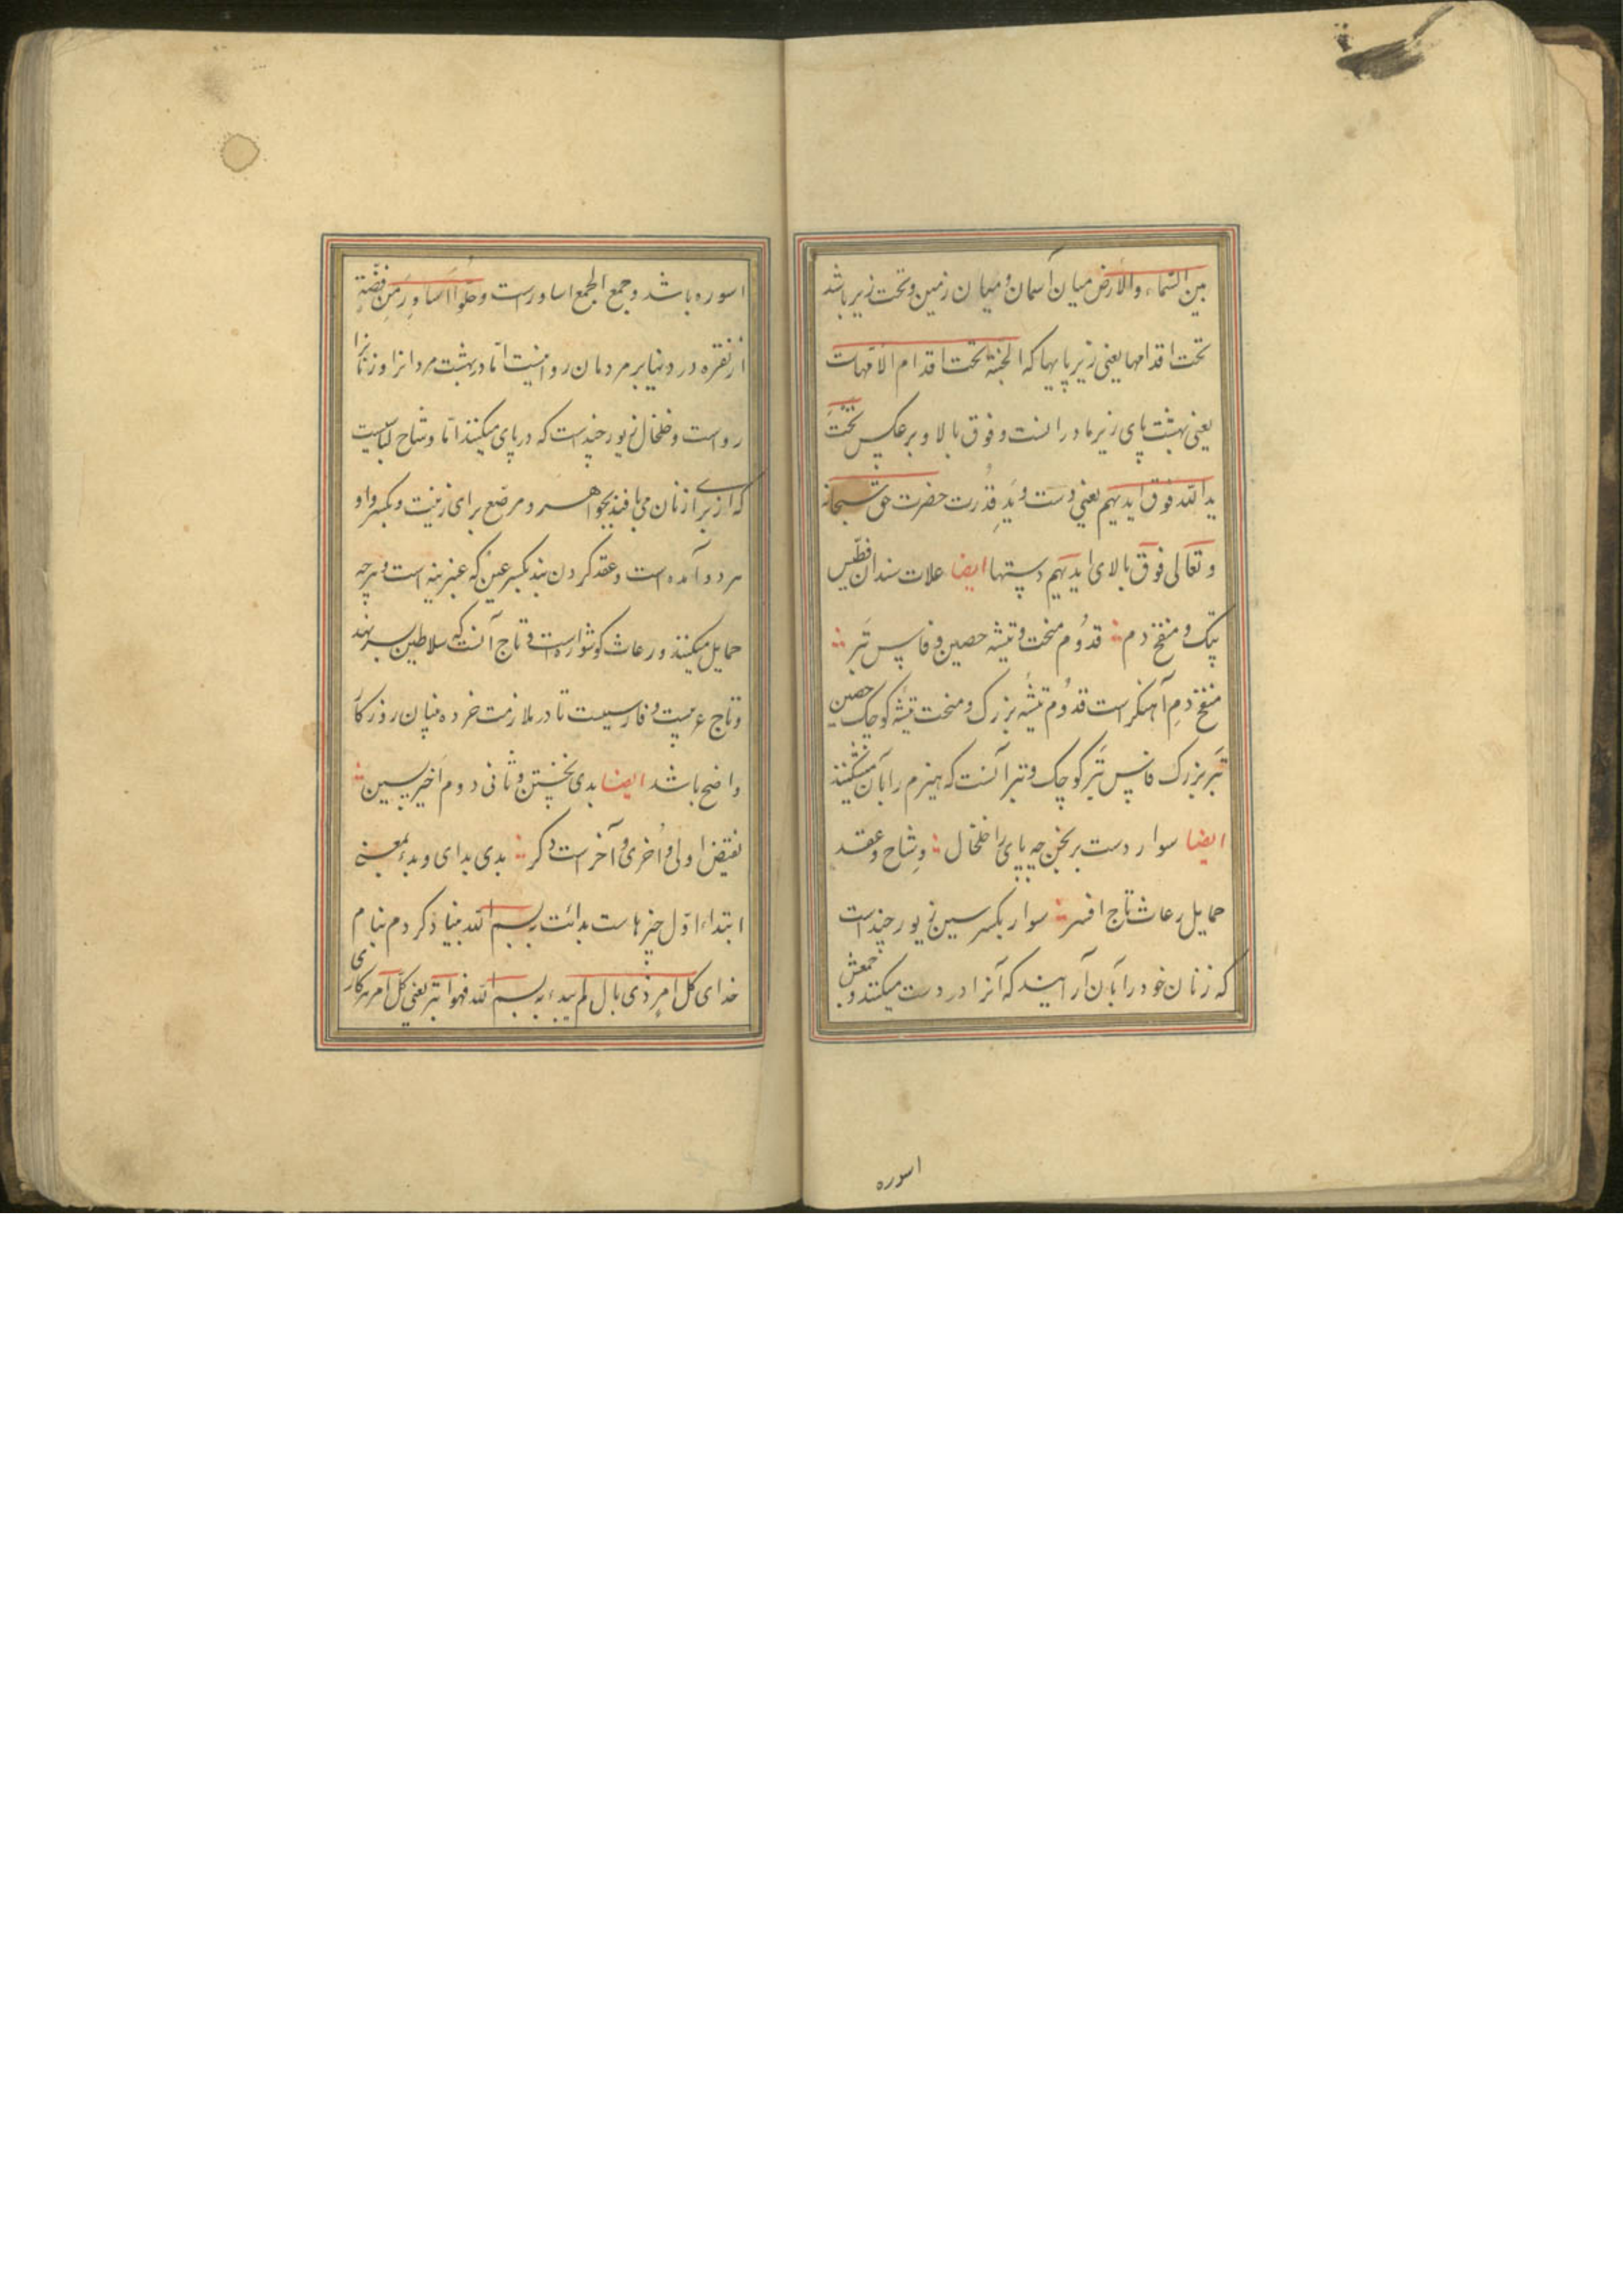 بین السّماء والأرض میان آسمان و میان زمین و تحت زیر باشد
تحت اقدامها یعنی زیر پایها که الجنّة تحت اقدام الامّهات
یعنی بهشت پای زیر مادرانست و فوق بالا و بر عکس تحت
ید الله فوق ایدیهم یعنی دست و ید قدرت حضرت حق سبحانه
و تعالی فوق بالای ایدیهم دستها ایضا علات سندان فطّیس
پتک و منفخ دم قدوم منحت و تیشه حصین و فاس تبر
منفخ دم آهنگر است قدوم تیشه بزرک و منحت تیشه کوچک حصین
تبر بزرک فاس تبر کوچک و تبر آنست که هیزم را بآن میشکنند
ایضا سوار دست برنجن چه پای را خلخال وشاح و عقد
حمایل رعاث تاج افسر سوار بکسر سین زیور چند است
که زنان خود را بآن آرایند که آنرا در دست میکنند و جمعش
اسوره
اسوره باشد و جمع الجمع اساور است و حلّوا اساور من فضّة
از نقره در دنیا بر مردمان روا نیست امّا در بهشت مردانرا و زنانرا
رواست و خلخال زیور چند است که در پای میکنند امّا وشاح لباسیست
که از برای زنان می بافند بجواهر و مرصّع برای زینت و بکسر واو
هر دو آمده است و عقد کردن بند بکسر عین که عنبرینه است و هرچه
حمایل میکنند و رعاث کوشواره است و تاج آنست که سلاطین بسر نهند
و تاج عربیست و فارسیست تا در ملازمت خرده بینان روزکار
واضح باشد ایضا بدی نخستن و ثانی دوم اخیر پسین
نقیض اولی و اخری و آخر است دکر بدی بدای و بدء بمعنی
ابتداء اوّل چیزهاست بدائت ببسم الله بنیاد کردم بنام
خدای کل امر ذی بال لم یبدء به بسم الله فهو ابتر یعنی کل امر هر کاری